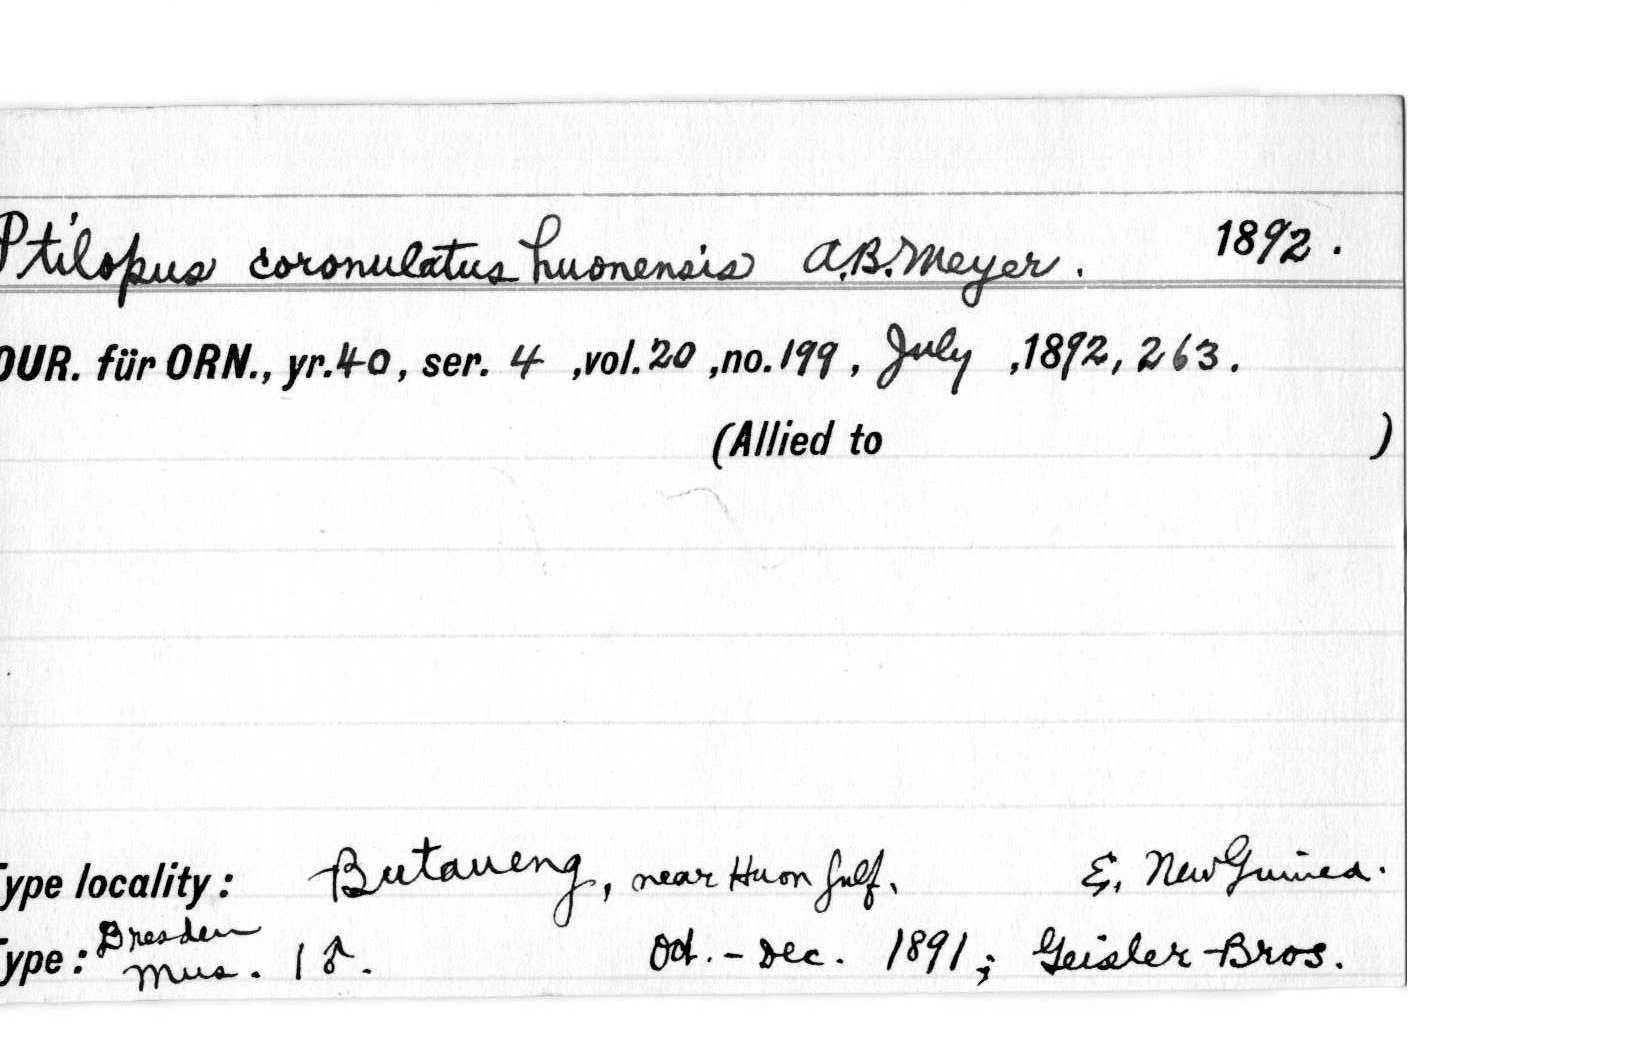 Ptilopus coronulatus huonensis A.B. Meyer. 1892.
OUR. für ORN., yr.40, ser. 4 ,vol.20 ,no.199, July ,1892, 263.
(Allied to )
Type locality: Butaueng, near Huon Gulf. E. New Guinea.
Type: Dresden Mus. 1 ♂. Oct. - Dec. 1891; Geisler Bros.